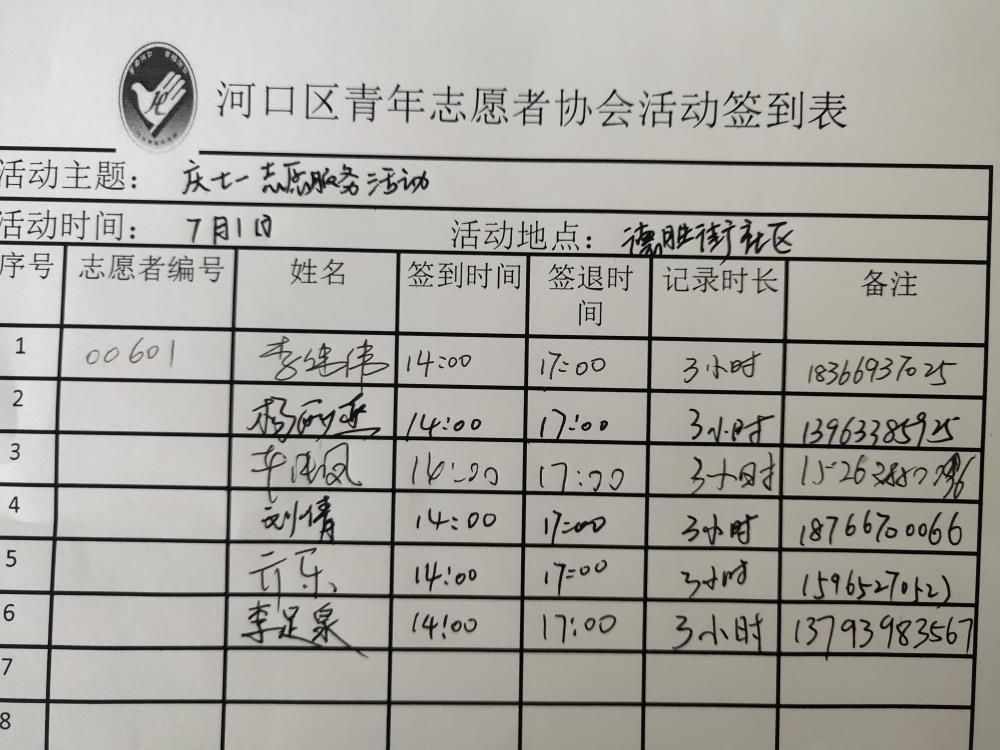 河口区青年志愿者协会活动签到表
活动主题： 庆七一志愿服务活动
活动时间： 7月1日 活动地点： 德胜街社区
序号 志愿者编号 姓名 签到时间 签退时间 记录时长 备注
1 00601 李建伟 14:00 17:00 3小时 18366937025
2 14:00 17:00 3小时 13963385925
3 14:00 17:00 3小时
4 刘倩 14:00 17:00 3小时 18766700066
5 14:00 17:00 3小时
6 李足泉 14:00 17:00 3小时 13793983567
7
8